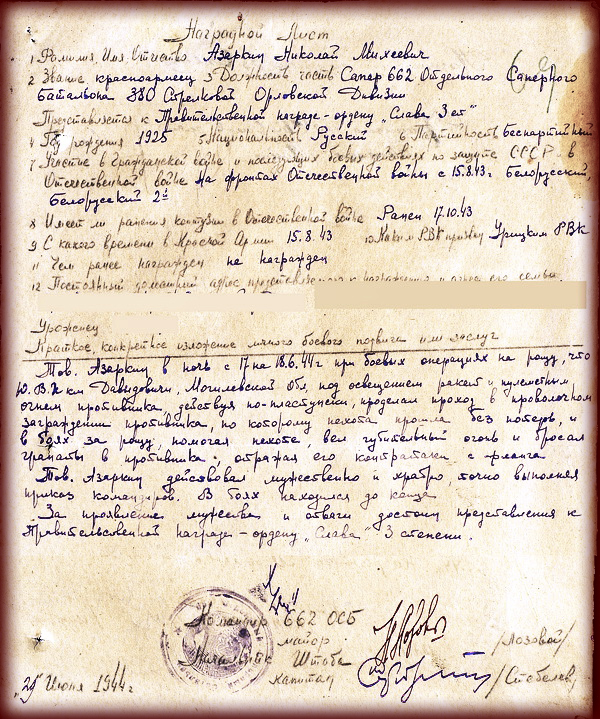 Наградной Лист
1 Фамилия, Имя, Отчество Азаркин Николай Михеевич
2 Звание красноармеец 3 Должность часть Сапер 662 Отдельного Саперного
батальона 380 Стрелковой Орловской Дивизии
Представляется к Правительственной награде - ордену „Слава 3 ст"
4 Год рождения 1925 5 Национальность Русский 6 Партийность беспартийный
7 Участие в гражданской войне и последующих боевых действиях по защите СССР в
Отечественной войне На фронтах Отечественной войны с 15.8.43г Белорусский,
Белорусский 2й
8 Имеет ли ранения контузии в Отечественной войне Ранен 17.10.43
9 С какого времени в Красной Армии 15.8.43 10 Каким РВК призван Урицким РВК
11 Чем ранее награжден не награжден
12 Постоянный домашний адрес представляемого к награждению и адрес его семьи
Уроженец
Краткое, конкретное изложение личного боевого подвига или заслуг
Тов. Азаркин в ночь с 17 на 18.6.44г при боевых операциях на рощу, что
Ю.В. км Давидовичи, Могилевской Обл, под освещением ракет и пулеметным
огнем противника, действуя по-пластунски, проделал проход в проволочном
заграждении противника, по которому пехота прошла без потерь, и
в боях за рощу, помогая пехоте, вел губительный огонь и бросал
гранаты в противника, отражая его контратаки с фланга.
Тов. Азаркин действовал мужественно и храбро, точно выполняя
приказ командиров. В боях находился до конца
За проявление мужества и отваги достоин представления к
Правительственной награде - ордену „Слава" 3 степени.
Командир 662 ОСБ
майор /Лозовой/
Начальник Штаба
капитан /Стобелев/
„29" Июня 1944г